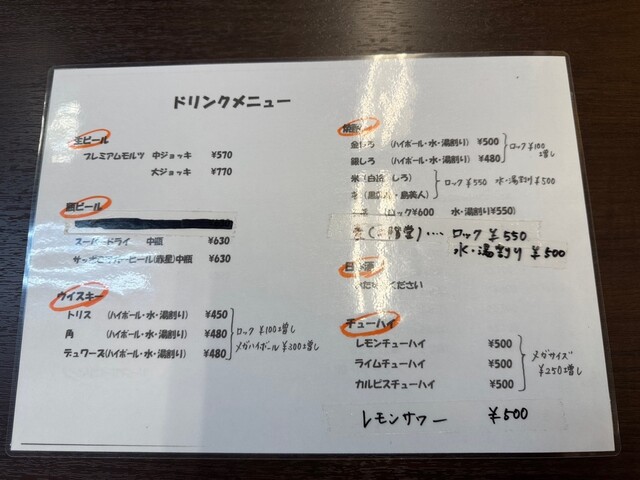 ドリンクメニュー
生ビール
プレミアムモルツ 中ジョッキ ¥570
大ジョッキ ¥770
ビール
スーパードライ 中瓶 ¥630
サッポロラガービール(赤星)中瓶 ¥630
ウイスキー
トリス (ハイボール・水・湯割り) ¥450
角 (ハイボール・水・湯割り) ¥480
デュワーズ(ハイボール・水・湯割り) ¥480
ロック ¥100増し
メガハイボール ¥300増し
焼酎
金しろ (ハイボール・水・湯割り) ¥500
銀しろ (ハイボール・水・湯割り) ¥480
ロック ¥100増し
米(白岳 しろ)
・島美人)
ロック ¥550 水・湯割り ¥500
(ロック¥600 水・湯割り¥550)
… ロック ¥550
水・湯割り ¥500
日
ください
チューハイ
レモンチューハイ ¥500
ライムチューハイ ¥500
カルピスチューハイ ¥500
メガサイズ
¥250増し
レモンサワー ¥500